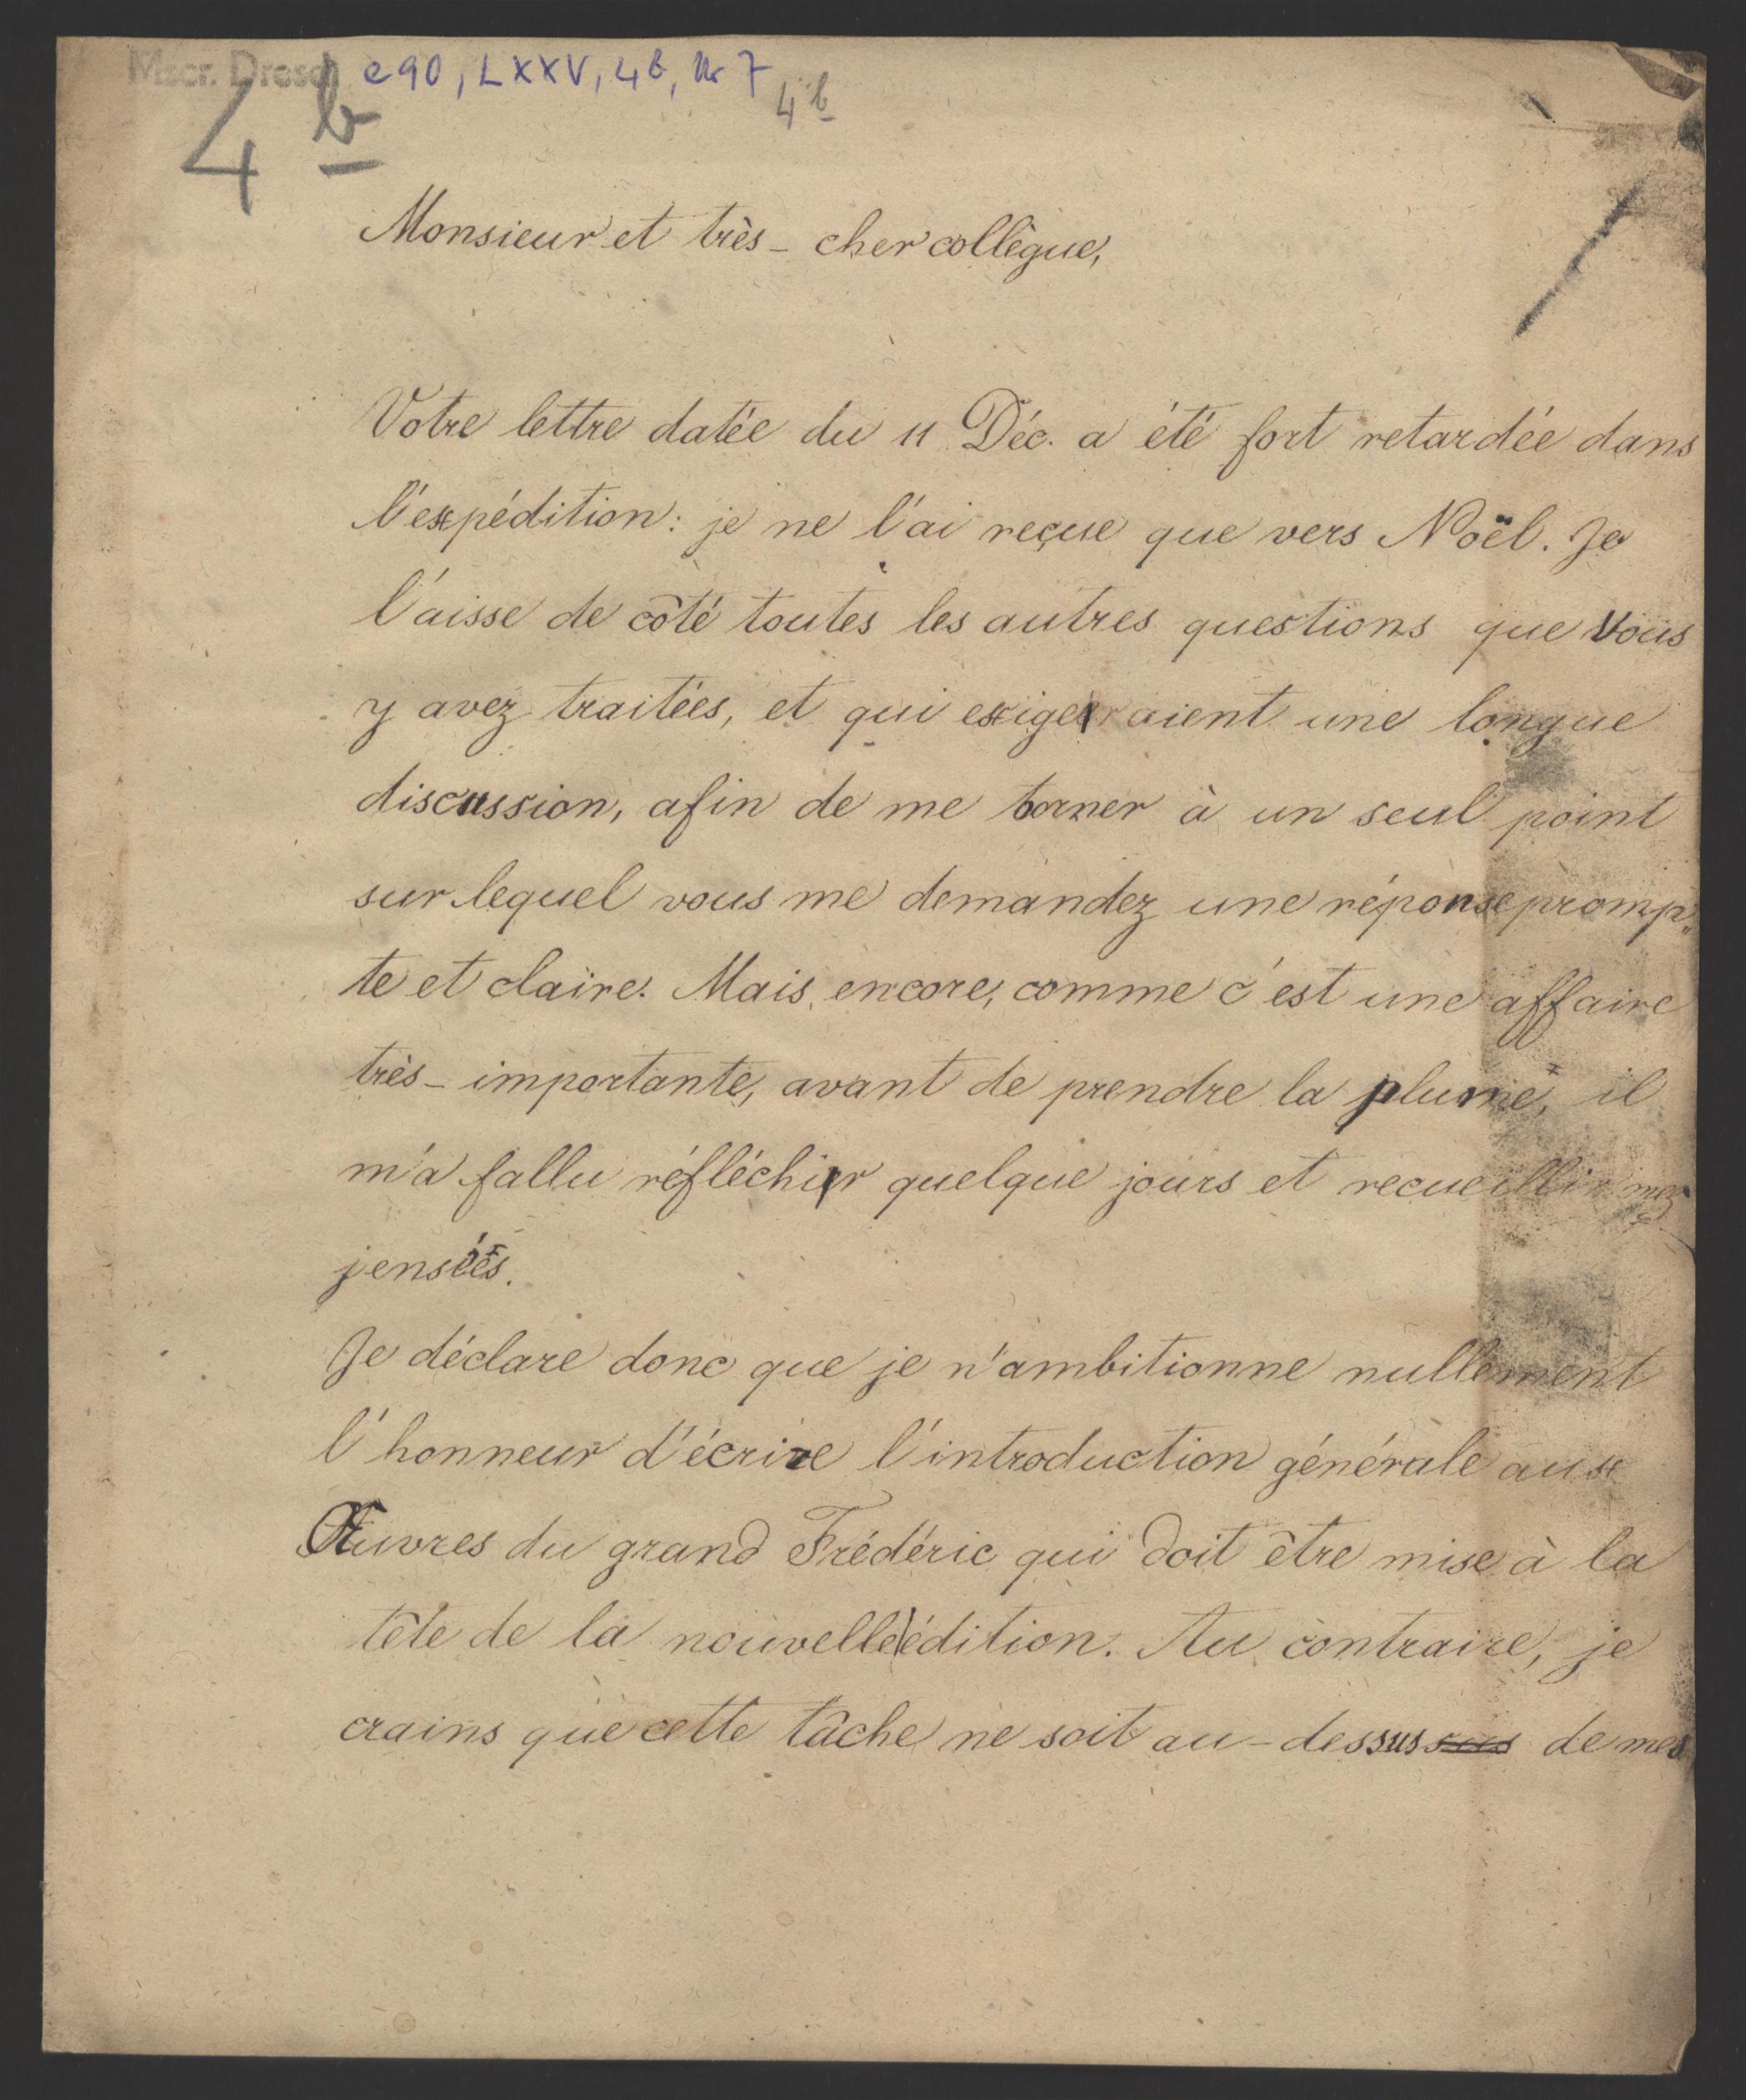 Mscr. Dresd. e 90, LXXV, 4b, Nr 7
4b
4b
Monsieur et très-cher collègue,
Votre lettre datée du 11 Déc. a été fort retardée dans
l'expédition: je ne l'ai reçue que vers Noël. Je
l'aisse de côté toutes les autres questions que vous
y avez traitées, et qui exigeraient une longue
discussion, afin de me borner à un seul point
sur lequel vous me demandez une réponse promp-
te et claire. Mais, encore, comme c'est une affaire
très-importante, avant de prendre la plume, il
m'a fallu réfléchir quelque jours et recueillir mes
pensées.
Je déclare donc que je n'ambitionne nullement
l'honneur d'écrire l'introduction générale aux
Œuvres du grand Frédéric qui doit être mise à la
tête de la nouvelle édition. Au contraire, je
crains que cette tâche ne soit au-dessus sus de mes